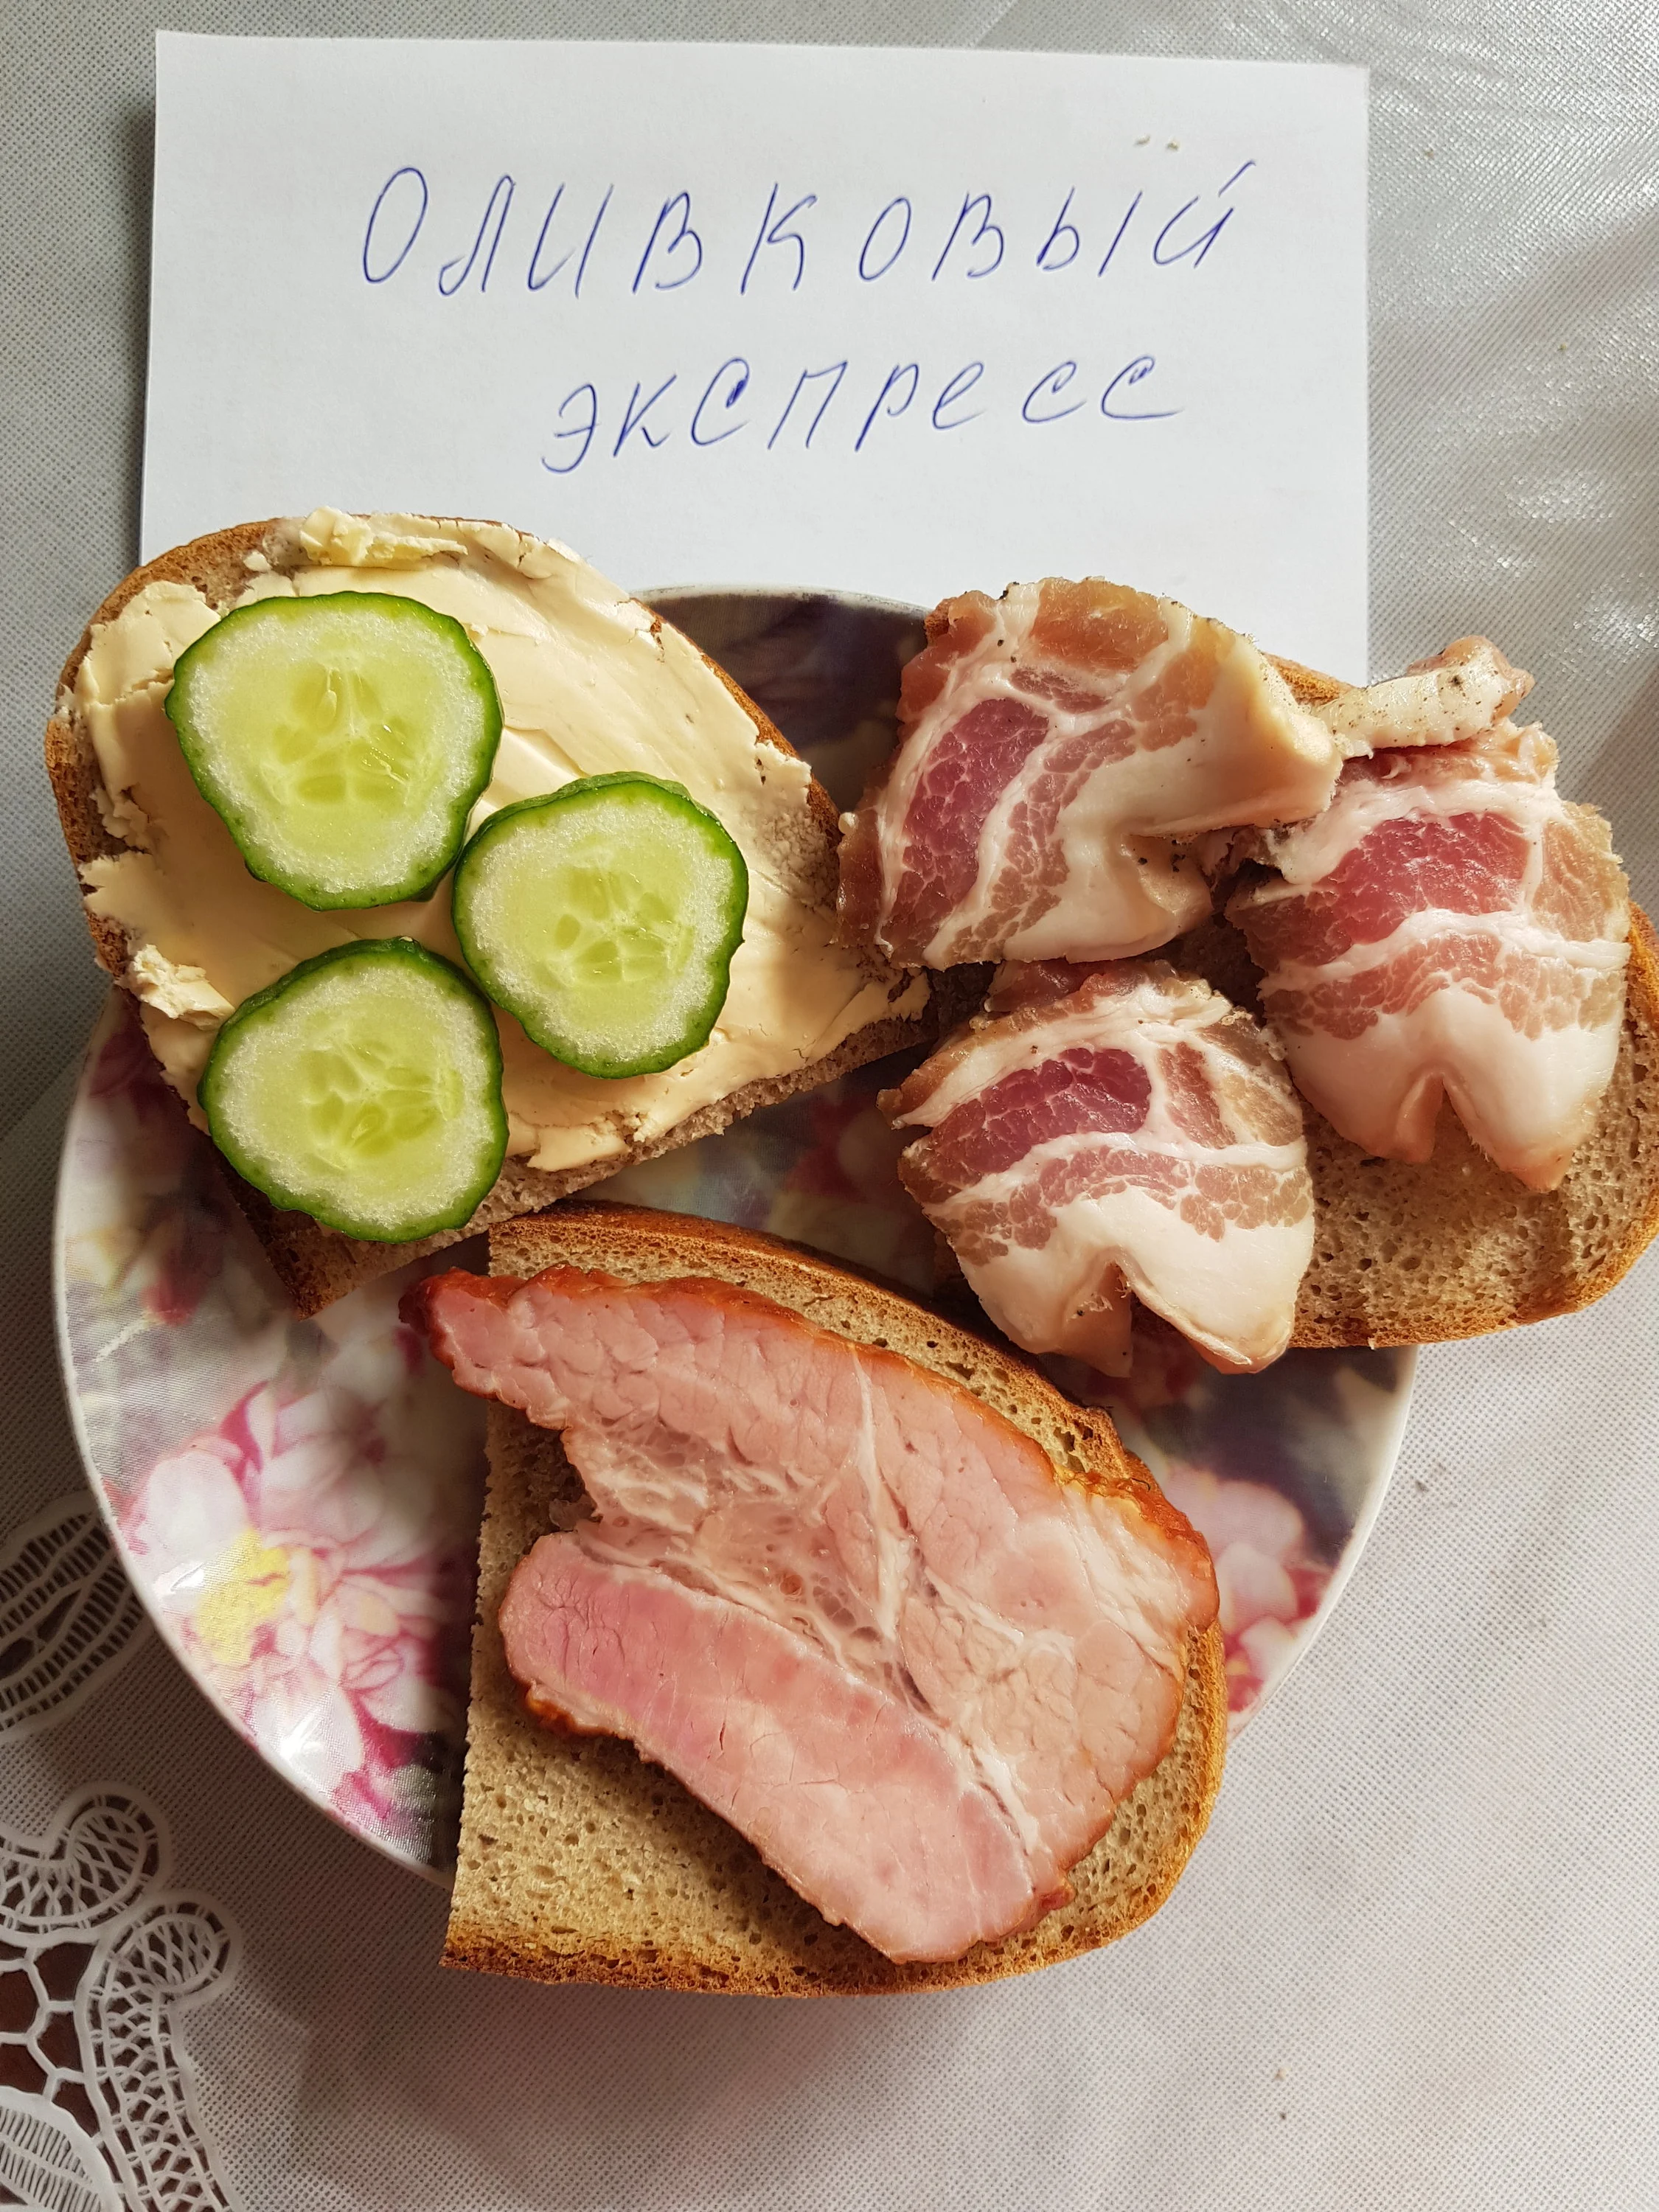 ОЛИВКОВЫЙ
ЭКСПРЕСС